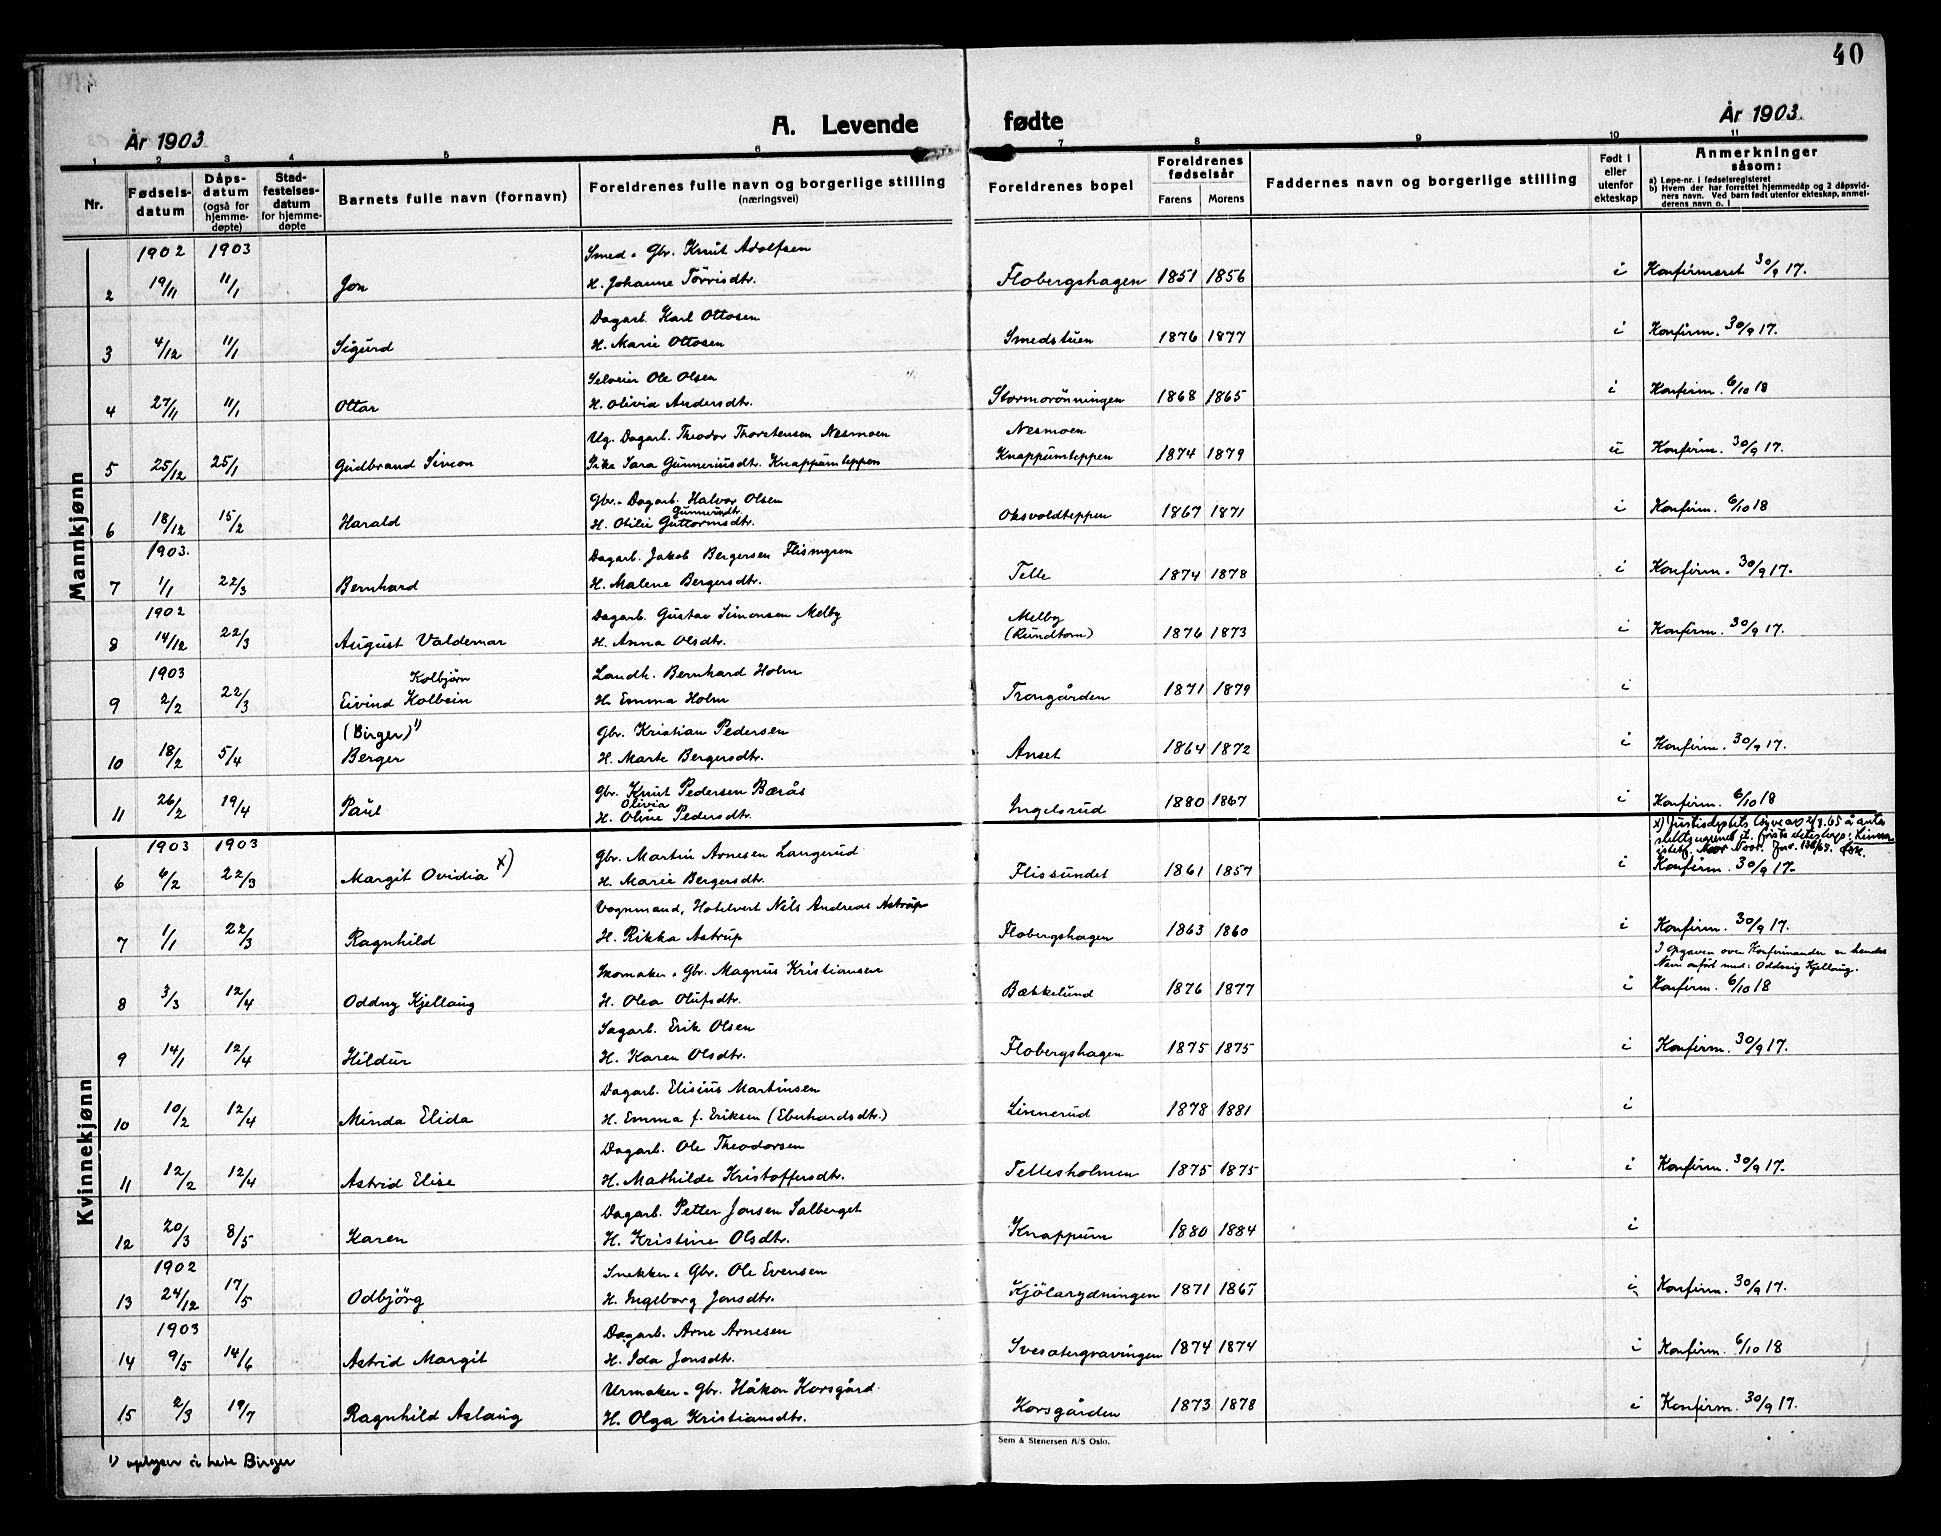 40
År 1903
A. Levende fødte
År 1903.
1 2 3 4 5 6 7 8 9 10 11
Nr. Fødsels-datum Dåps-datum (også for hjemme-døpte) Stad-festelses-datum for hjemme-døpte Barnets fulle navn (fornavn) Foreldrenes fulle navn og borgerlige stilling (næringsvei) Foreldrenes bopel Foreldrenes fødselsår Farens Morens Faddernes navn og borgerlige stilling Født i eller utenfor ekteskap Anmerkninger såsom:
a) Løpe-nr. i fødselsregisteret
b) Hvem der har forrettet hjemmedåp og 2 dåpsvidners navn. Ved barn født utenfor ekteskap, anmelderens navn o. l
Mannkjønn
1902 1903 Smed. Gbr. Knut Adolfsen
2 19/11 11/1 Jon H. Johanne Törrisdtr. Flobergshagen 1851 1856 i Konfirmeret 30/9 17.
Dagarb. Karl Ottosen
3 4/12 11/1 Sigurd H. Marie Ottosen Smedstuen 1876 1877 i Konfirm. 30/9 17.
Selveier Ole Olsen
4 27/11 11/1 Ottar H. Olivia Andersdtr. Stormorönningen 1868 1865 i Konfirm. 6/10 18
Ug. Dagarb. Theodor Thorstensen Nesmoen Nesmoen
5 25/12 25/1 Gudbrand Simon Pike Sara Gunneriusdtr. Knappumteppen Knappumteppen 1874 1879 u Konfirm. 30/9 17.
Gbr. Dagarb. Halvor Olsen
Gunnerusdtr.
6 18/12 15/2 Harald H. Otilie Guttormsdtr. Oksvoldteppen 1867 1871 i Konfirm. 6/10 18
1903. Dagarb. Jakob Bergersen Flismyren
7 1/1 22/3 Bernhard H. Malene Bergersdtr. Telle 1874 1878 i Konfirm. 30/9 17.
1902 Dagarb. Gustav Simonsen Melby Melby
8 14/12 22/3 August Valdemar H. Anna Olsdtr. (Rundtom) 1876 1873 i Konfirm. 30/9 17.
1903 Kolbjørn Landh. Bernhard Holm
9 2/2 22/3 Eivind Kolbein H. Emma Holm Trongården 1871 1879 i
(Birger) 1) Gbr. Kristian Pedersen
10 18/2 5/4 Berger H. Marte Bergersdtr. Anset 1864 1872 i Konfirm. 30/9 17.
Gbr. Knut Pedersen Bærås
Olivia
11 26/2 19/4 Paul H. Oline Pedersdtr. Ingelsrud 1880 1867 i Konfirm. 6/10 18
Kvinnekjønn
1903 1903 Gbr. Martin Arnesen Langerud
6 6/2 22/3 Margit Ovidia x) H. Marie Bergersdtr. Flissundet 1861 1857 i Konfirm. 30/9 17.
Vognmand, Hotelvert Nils Andreas Astrup
7 1/1 22/3 Ragnhild H. Rikka Astrup Flobergshagen 1863 1860 i Konfirm. 30/9 17.
I Opgaven over Konfirmander er hendes
Navn anført med: Oddveig Kjellaug.
Skomaker. Gbr. Magnus Kristiansen
8 3/3 12/4 Oddny Kjellaug H. Olea Olufsdtr. Bækkelund 1876 1877 i Konfirm. 6/10 18
Sagarb. Erik Olsen
9 14/1 12/4 Hildur H. Karen Olsdtr. Flobergshagen 1875 1875 i Konfirm. 30/9 17.
Dagarb. Elisius Martinsen
10 10/2 12/4 Minda Elida H. Emma f. Eriksen (Eberhardsdtr.) Linnerud 1878 1881 i
Dagarb. Ole Theodorsen
11 12/2 12/4 Astrid Elise H. Mathilde Kristoffersdtr. Tellesholmen 1875 1875 i Konfirm. 30/9 17.
Dagarb. Petter Jonsen Salberget
12 20/3 8/5 Karen H. Kristine Olsdtr. Knappum 1880 1884 i
1902 Snekker. Gbr. Ole Evensen
13 24/12 17/5 Odbjörg H. Ingeborg Jonsdtr. Kjölarydningen 1871 1867 i Konfirm. 30/9 17.
1903 Dagarb. Arne Arnesen
14 9/5 14/6 Astrid Margit H. Ida Jonsdtr. 1874 1874 i Konfirm. 6/10 18
Urmaker. Gbr. Håkon Korsgård.
15 2/3 19/7 Ragnhild Aslaug H. Olga Kristiansdtr. Korsgården 1873 1878 i Konfirm. 30/9 17.
Sem & Stenersen A/S Oslo.
1) oplyser å hete Birger